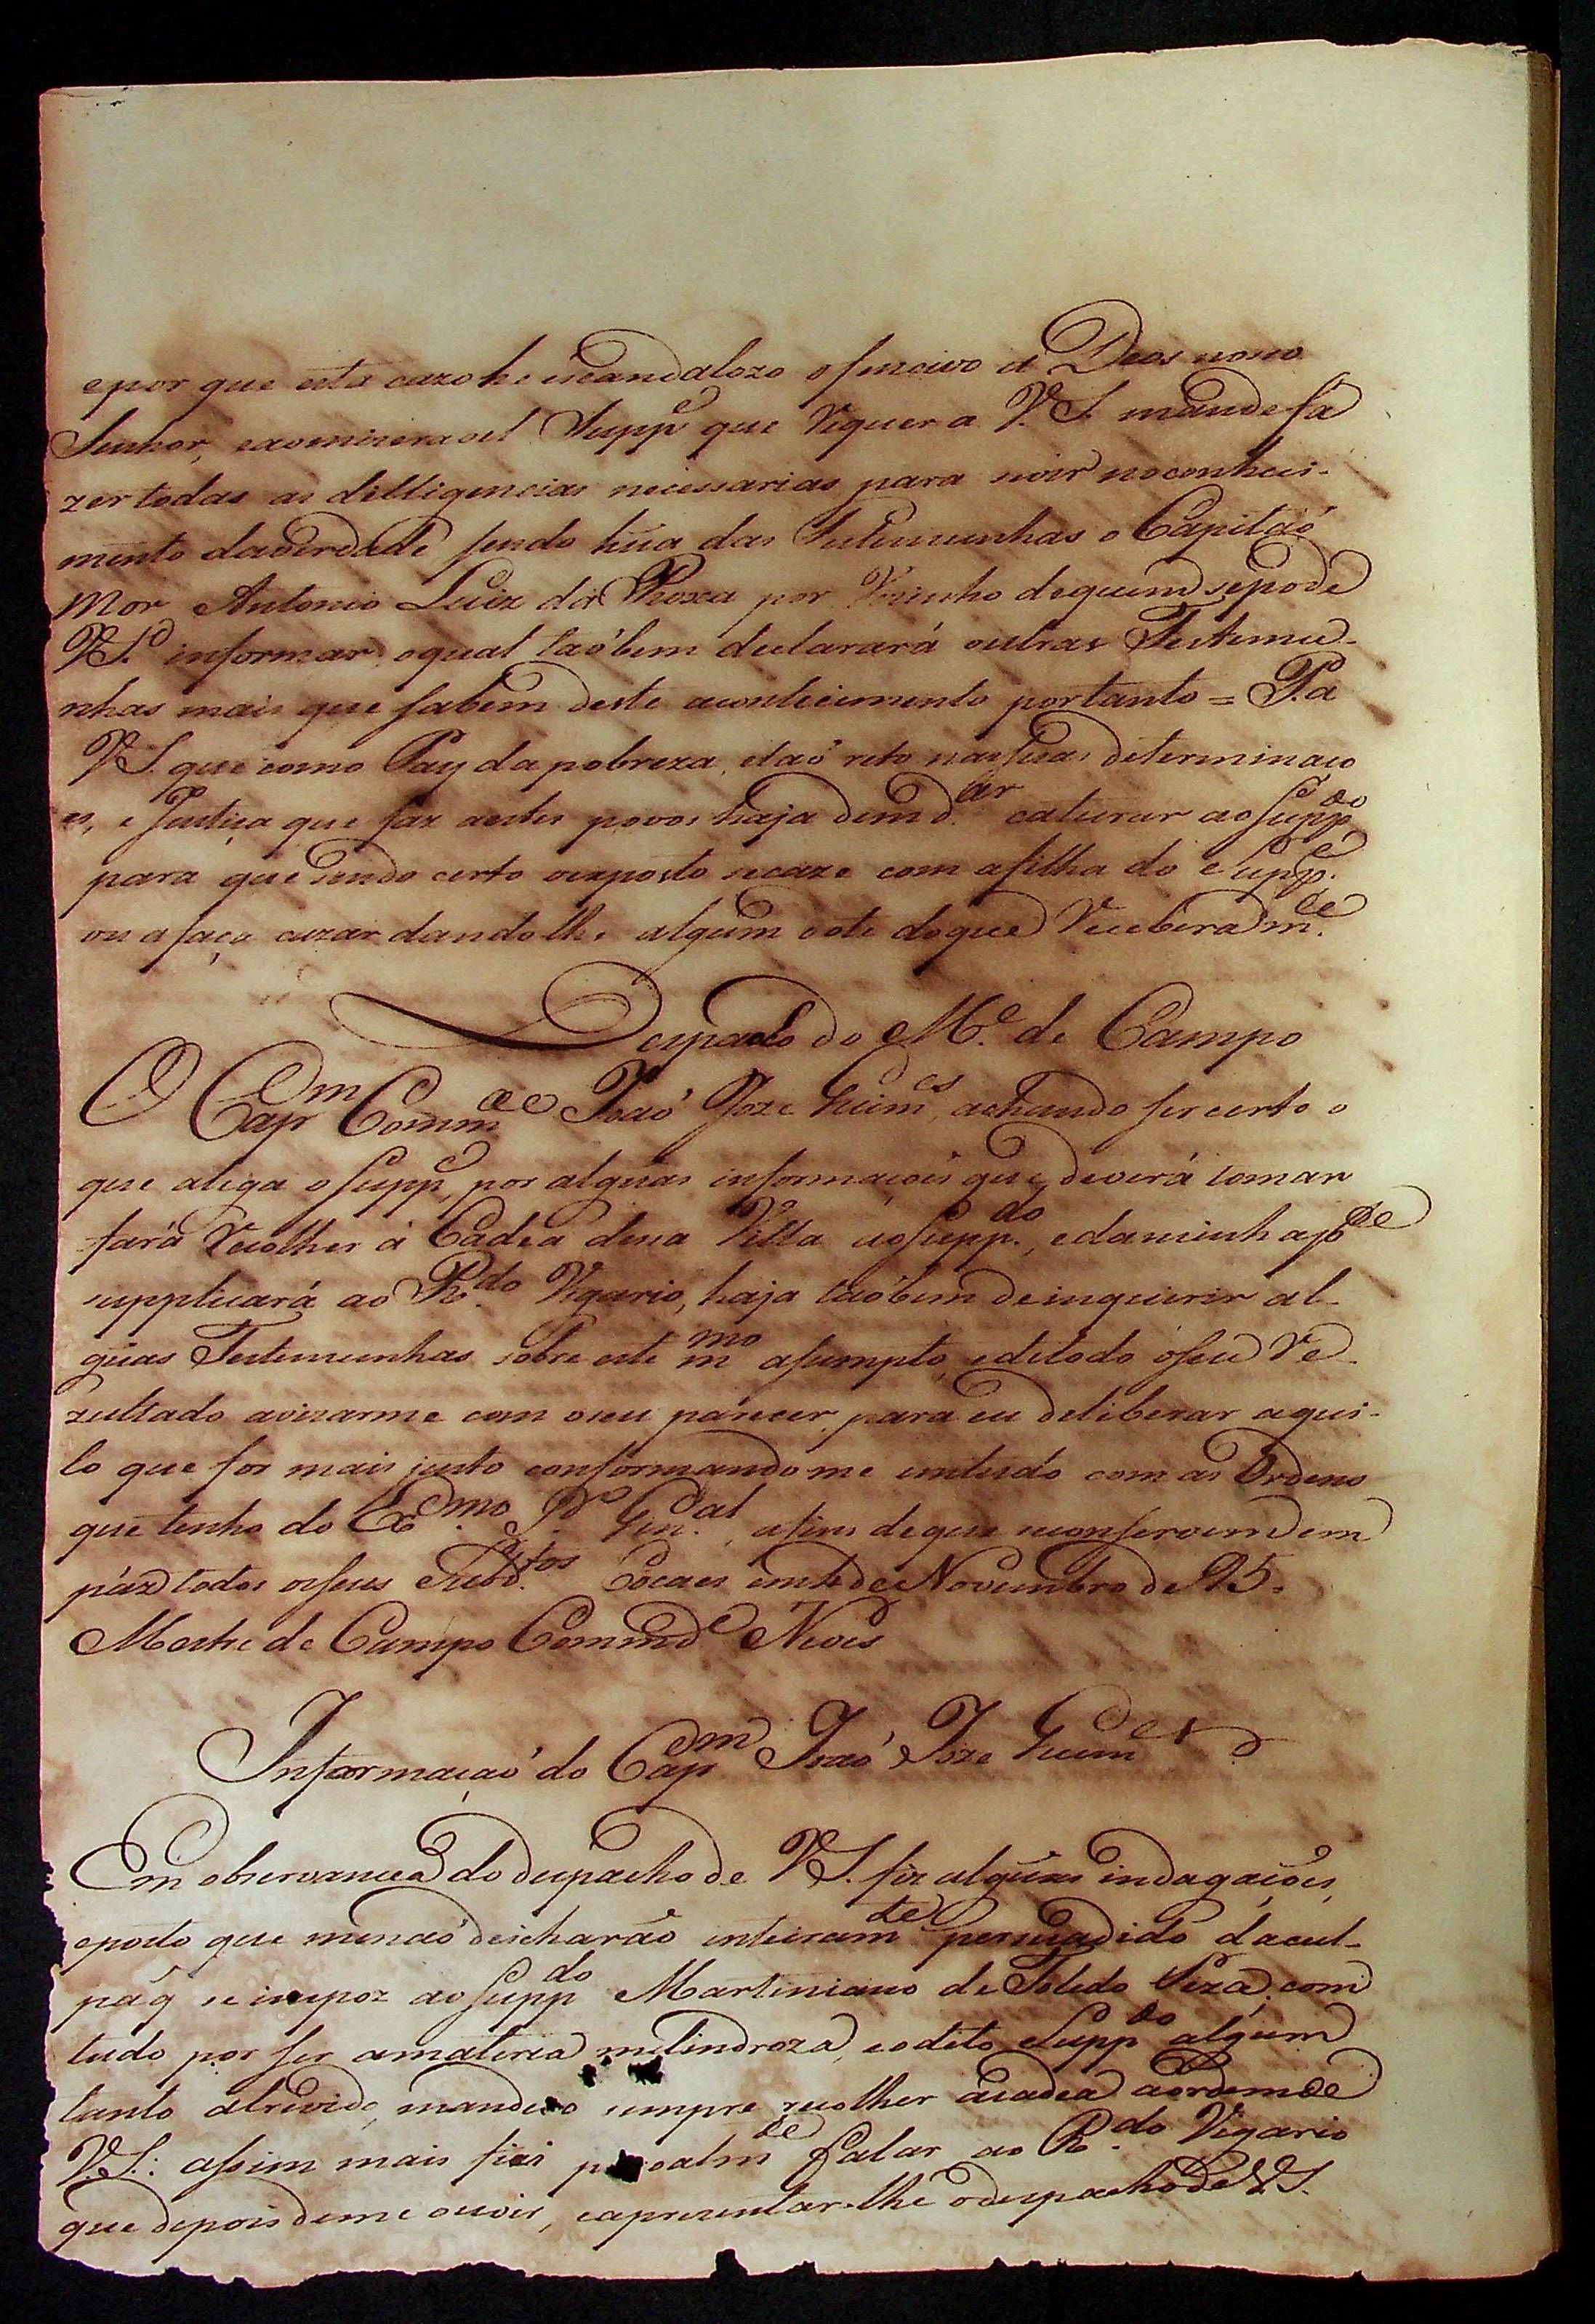 epor que esta cazo he iscandalozo ofencivo a Deos nosso
Senhor, eavenirera oel Supp.e que Requer a V.S. mande fa
zer todas as delligencias necessarias para noir noconheci-
mento daverdade sendo hũa das Testemunhas o Capitaó
Mor Antonio Luiz da Roxa por Vizinho dequem sepode
V.S. informar, oqual taóbem declarará outras Testemu-
nhas mais que sabem deste acontecimento portanto = P.a
V.S. que como Pay da pobreza, etaó reto nassuas determinaco
es, e Justiça que faz aestes povos haja demd.ar caturar ao Supp.do
para que sendo certo oexposto secaze com afilha do Supp.e
ou afaça cazar dandolhe algum dote doque Recebera m.ce
Despacho do M.e de Campo
O Cap.m Comm.de Joaó Joze Guim.es achando ser certo o
que alega o Supp.e, por algũas informaçoés que deverá tomar
fará Recolher á Cadea dessa Villa ao Supp.do, edaminha p.te
supplicará ao R.do Vigario, haja taóbem deinquerir al-
gũas Testemunhas sobre este m.mo asumpto, edetodo oseu Re-
zultado avizarme com oseu parecer, para eu deliberar aqui-
lo que for mais justo conformandome emtudo com as Ordens
que tenho do Ex.mo S.r Gen.al, afim deque seconservem em
páz todos osseus Subd.tos Cocaes de Novembro de 95.
Mestre de Campo Commd.e Neves
Informaçaó do Cap.m Joaó Joze Guim.es
Em observancia do despacho de V.S. fiz algũas indagaçoẽs,
eposto que menaó deicharaõ inteiram.te persuadido dacul-
pa q̃ se impoz ao Supp.do Martiniano de Toledo Piza, com
tudo por ser amateria melindroza, eodito Supp.do algum
tanto atrevido, mandeio sempre recolher ácadea aordem de
V.S.: assim mais fui pesoalm.te falar ao R.do Vigario
que depois deme ouvir, eaprezentar-lhe odespacho de V.S.